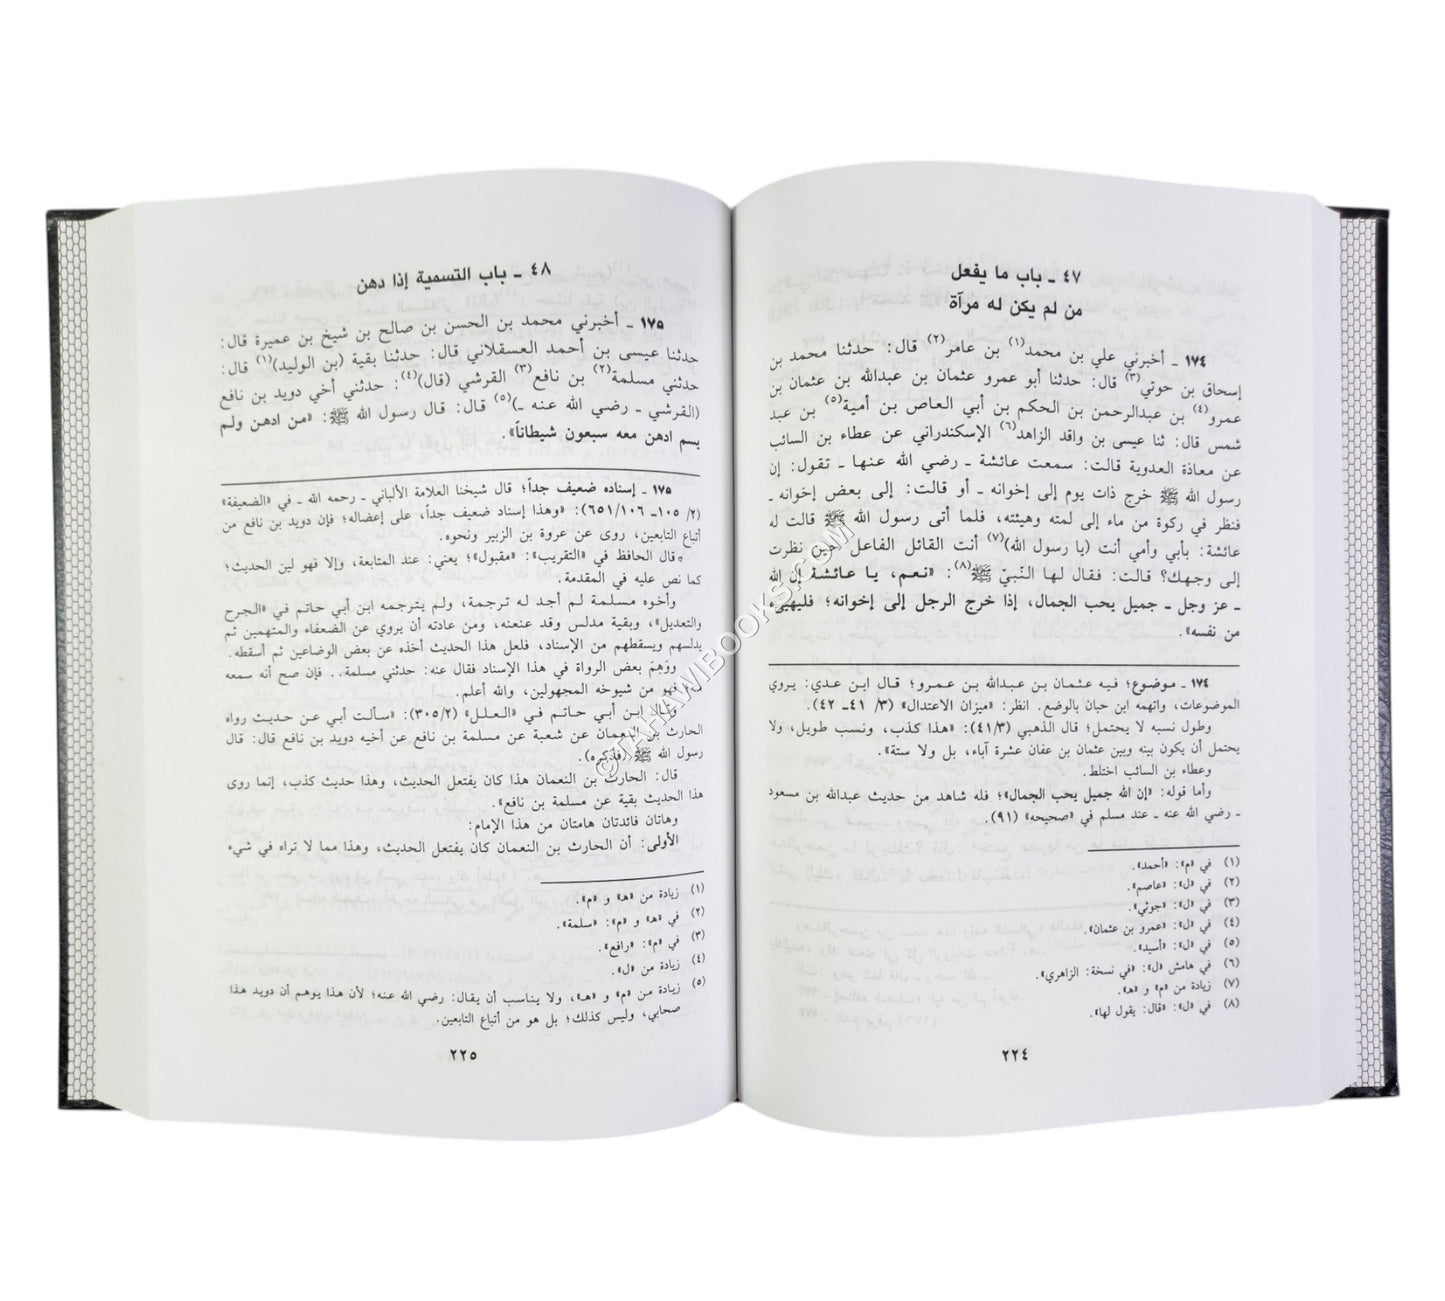 ٤٧ ـ باب ما يفعل
من لم يكن له مرآة
١٧٤ ـ أخبرني علي بن محمد(١) بن عامر(٢) قال: حدثنا محمد بن
إسحاق بن حوتي(٣) قال: حدثنا أبو عمرو عثمان بن عبدالله بن عثمان بن
عمرو(٤) بن عبدالرحمن بن الحكم بن أبي العاص بن أمية(٥) بن عبد
شمس قال: ثنا عيسى بن واقد الزاهد(٦) الإسكندراني عن عطاء بن السائب
عن معاذة العدوية قالت: سمعت عائشة ـ رضي الله عنها ـ تقول: إن
رسول الله ﷺ خرج ذات يوم إلى إخوانه ـ أو قالت: إلى بعض إخوانه ـ
فنظر في ركوة من ماء إلى لمته وهيئته، فلما أتى رسول الله ﷺ قالت له
عائشة: بأبي وأمي أنت (يا رسول الله)(٧) أنت القائل الفاعل حين نظرت
إلى وجهك؟ قالت: فقال لها النّبيّ ﷺ(٨): «نعم، يا عائشة إن الله
ـ عز وجل ـ جميل يحب الجمال، إذا خرج الرجل إلى إخوانه؛ فليهيىء
من نفسه».
١٧٤ ـ موضوع؛ فيه عثمان بن عبدالله بن عمرو؛ قال ابن عدي: يروي
الموضوعات، واتهمه ابن حبان بالوضع. انظر: «ميزان الاعتدال» (٣/ ٤١ـ ٤٢).
وطول نسبه لا يحتمل؛ قال الذهبي (٤١/٣): «هذا كذب، ونسب طويل، ولا
يحتمل أن يكون بينه وبين عثمان بن عفان عشرة آباء، بل ولا ستة».
وعطاء بن السائب اختلط.
وأما قوله: «إن الله جميل يحب الجمال»؛ فله شاهد من حديث عبدالله بن مسعود
ـ رضي الله عنه ـ عند مسلم في «صحيحه» (٩١).
(١) في «م»: «أحمد».
(٢) في «ل»: «عاصم».
(٣) في «ل»: «جوثي».
(٤) في «ل»: «عمرو بن عثمان».
(٥) في «ل»: «أسيد».
(٦) في هامش «ل»: «في نسخة: الزاهري».
(٧) زيادة من «م» و «هـ».
(٨) في «ل»: «قال: يقول لها».
٢٢٤
٤٨ ـ باب التسمية إذا دهن
١٧٥ ـ أخبرني محمد بن الحسن بن صالح بن شيخ بن عميرة قال:
حدثنا عيسى بن أحمد العسقلاني قال: حدثنا بقية (بن الوليد)(١) قال:
حدثني مسلمة(٢) بن نافع(٣) القرشي (قال)(٤): حدثني أخي دويد بن نافع
(القرشي ـ رضي الله عنه ـ)(٥) قال: قال رسول الله ﷺ: «من ادهن ولم
يسم ادهن معه سبعون شيطاناً».
١٧٥ ـ إسناده ضعيف جداً؛ قال شيخنا العلامة الألباني ـ رحمه الله ـ في «الضعيفة»
(٢/ ١٠٥ـ ٦٥١/١٠٦): «وهذا إسناد ضعيف جداً، على إعضاله؛ فإن دويد بن نافع من
أتباع التابعين، روى عن عروة بن الزبير ونحوه.
قال الحافظ في «التقريب»: «مقبول»؛ يعني: عند المتابعة، وإلا فهو لين الحديث؛
كما نص عليه في المقدمة.
وأخوه مسلمة لم أجد له ترجمة، ولم يترجمه ابن أبي حاتم في «الجرح
والتعديل»، وبقية مدلس وقد عنعنه، ومن عادته أن يروي عن الضعفاء والمتهمين ثم
يدلسهم ويسقطهم من الإسناد، فلعل هذا الحديث أخذه عن بعض الوضاعين ثم أسقطه.
ووَهِمَ بعض الرواة في هذا الإسناد فقال عنه: حدثني مسلمة.. فإن صح أنه سمعه
منه؛ فهو من شيوخه المجهولين، والله أعلم.
وقال ابن أبي حاتم في «العلل» (٣٠٥/٢): «سألت أبي عن حديث رواه
الحارث بن النعمان عن شعبة عن مسلمة بن نافع عن أخيه دويد بن نافع قال: قال
رسول الله ﷺ (فذكره).
قال: الحارث بن النعمان هذا كان يفتعل الحديث، وهذا حديث كذب، إنما روى
هذا الحديث بقية عن مسلمة بن نافع».
وهاتان فائدتان هامتان من هذا الإمام:
الأولى: أن الحارث بن النعمان كان يفتعل الحديث، وهذا مما لا تراه في شيء
(١) زيادة من «هـ» و «م».
(٢) في «هـ» و «م»: «سلمة».
(٣) في «م»: «رافع».
(٤) زيادة من «ل».
(٥) زيادة من «م» و «هـ»، ولا يناسب أن يقال: رضي الله عنه؛ لأن هذا يوهم أن دويد هذا
صحابي، وليس كذلك؛ بل هو من أتباع التابعين.
٢٢٥